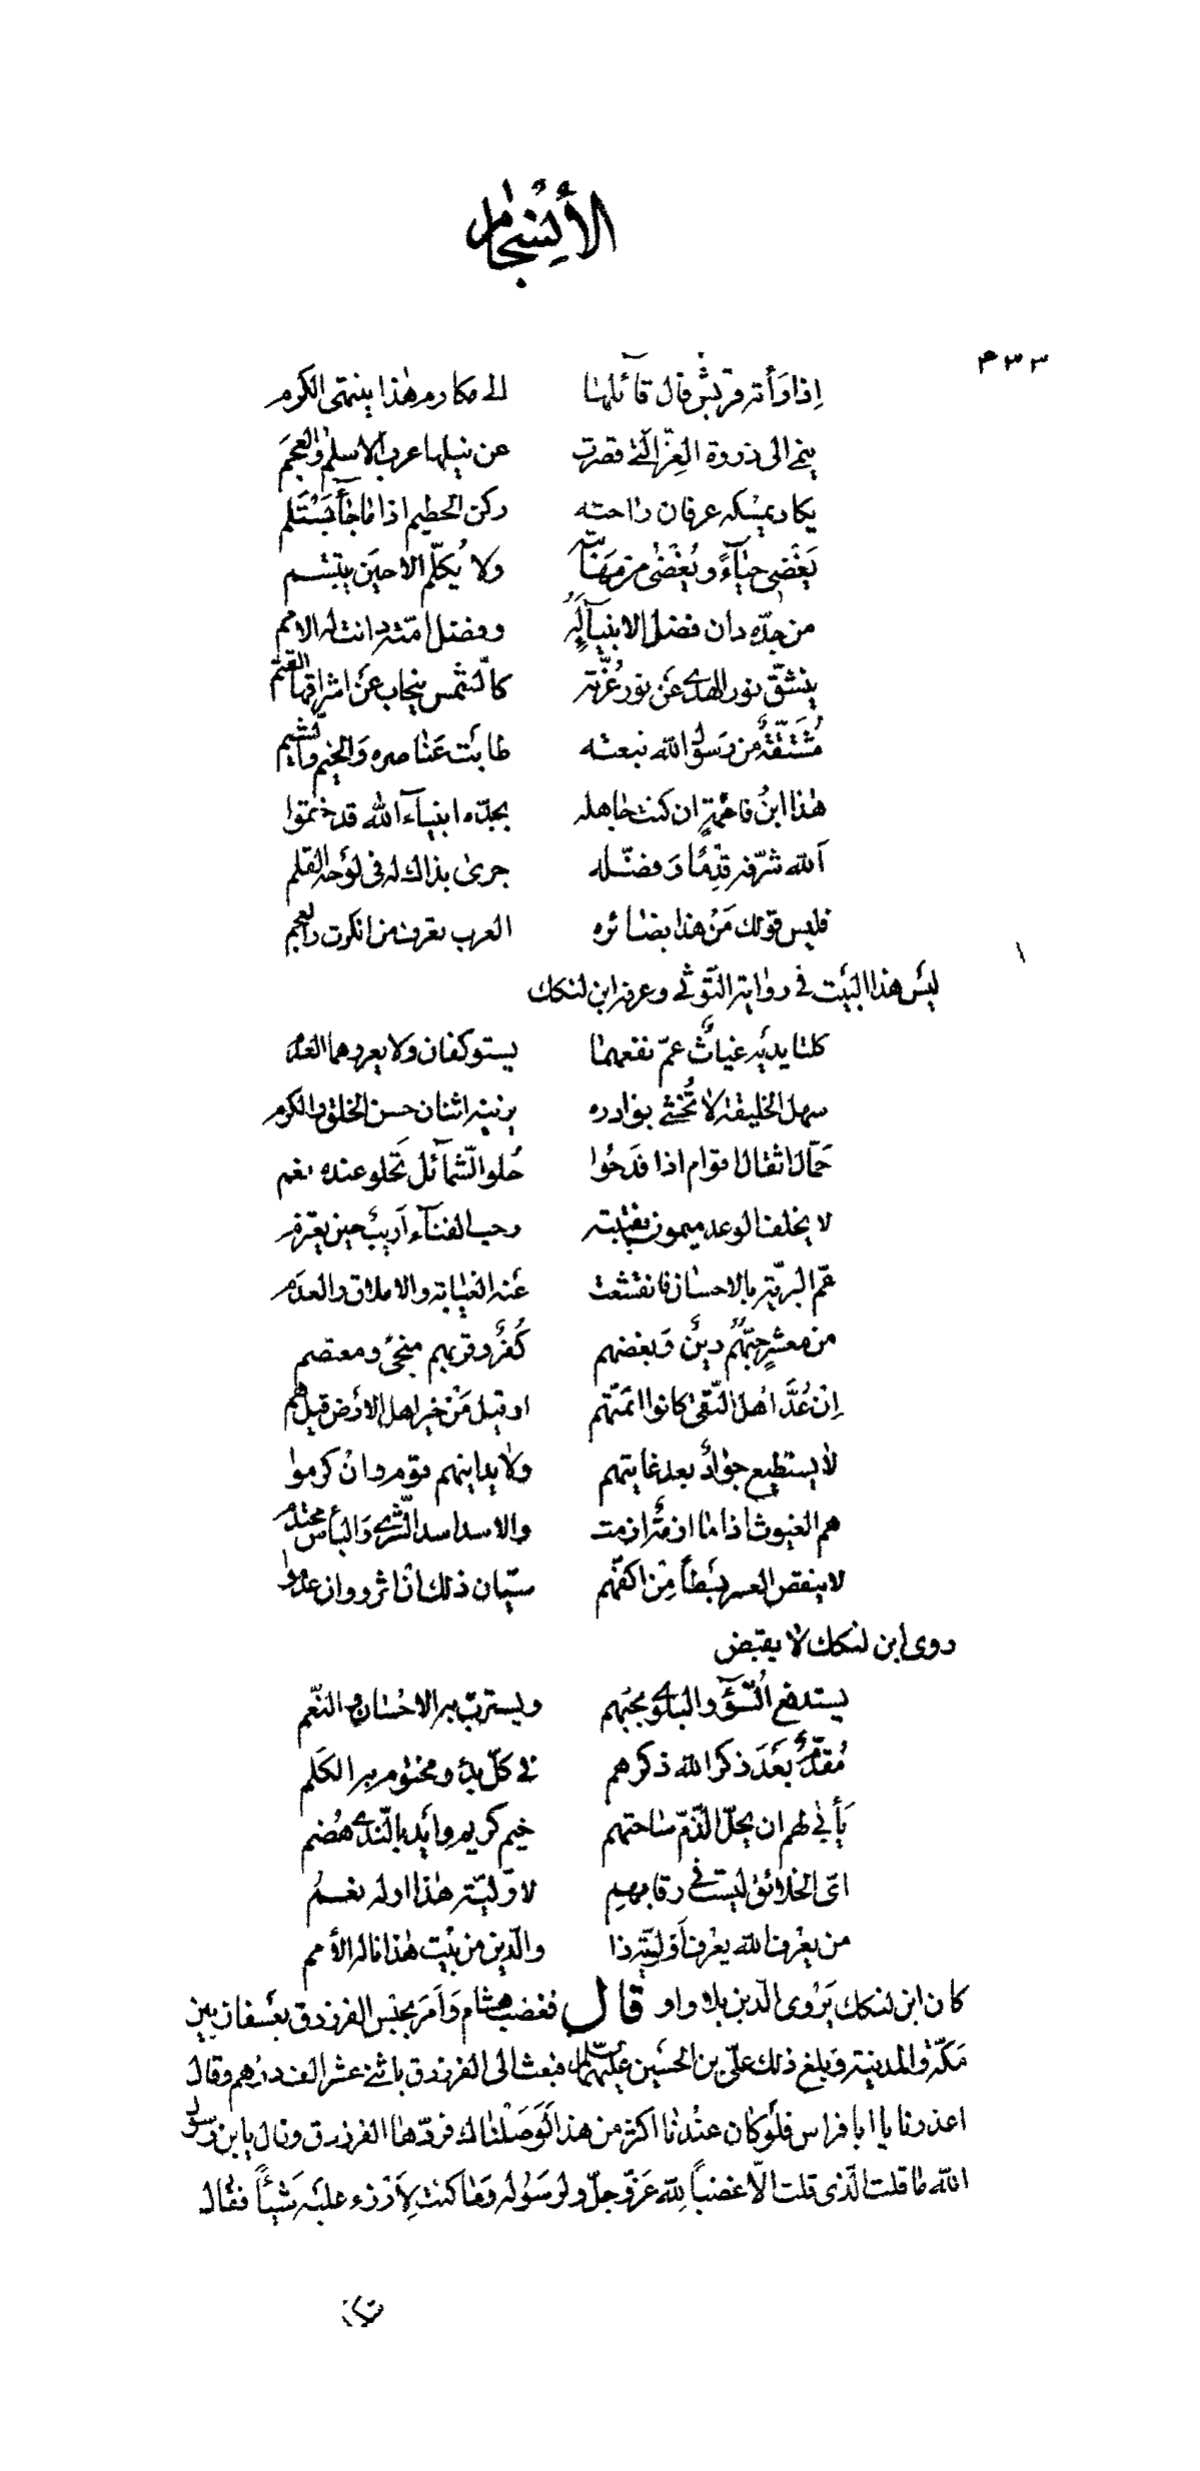 الأنسجام
٤٣٣
إذا رأته قريش قال قائلها الى مكارم هذا ينتهى الكرم
ينمى الى ذروة العزّ التى قصرت عن نيلها عرب الاسلم والعجم
يكاد يمسكه عرفان راحته ركن الحطيم اذا ما جآء يستلم
يغضى حيآءً ويُغضى من مهابته ولا يُكلّم الا حين يبتسم
من جدّه دان فضل الانبيآء له وفضل امّته دانت له الامم
ينشقّ نور الهدى عن نور غرّته كالشمس ينجاب عن اشراقها القتم
مشتقّة من رسول الله نبعته طابت عناصره والخيم والشيم
هذا ابن فاطمة ان كنت جاهله بجدّه انبيآء الله قد ختموا
الله شرّفه قدمًا وفضّله جرى بذاك له فى لوحه القلم
فليس قولك من هذا بضائره العرب تعرف من انكرت والعجم
ليس هذا البيت فى رواية التّوثى وعرفه ابن لنكك
كلتا يديه غياث عمّ نفعهما يستوكفان ولا يعروهما العدم
سهل الخليقة لا تُخشى بوادره يزينه اثنان حسن الخلق والكرم
حمّال اثقال اقوام اذا فدحوا حُلو الشّمآئل تَحلو عنده نعم
لا يخلف الوعد ميمون نقيبته رحب الفنآء أريب حين يعتزم
عمّ البريّة بالاحسان فانقشعت عنه الغيابة والاملاق والعدم
من معشر حبّهم دين وبغضهم كُفر وقربهم منجى ومعتصم
إن عُدّ اهل التّقى كانوا ائمّتهم او قيل مَن خير اهل الأرض قيل هم
لا يستطيع جواد بعد غايتهم ولا يدانيهم قوم وان كرموا
هم الغيوث اذا ما ازمة ازمت والاسد اسد الشّرى والبأس محتدم
لا ينقص العسر بسطاً من اكفّهم سيّان ذلك ان اثروا وان عدموا
روى ابن لنكك لا يقبض
يستدفع السّوء والبلوى بحبّهم ويستربّ به الاحسان والنّعم
مُقدّم بعد ذكر الله ذكرهم فى كلّ بدء ومختوم به الكَلم
يأبى لهم ان يحلّ الذّمّ ساحتهم خيم كريم وايد بالنّدى هُضم
اىّ الخلائق ليست فى رقابهم لاوّليّة هذا اوله نعم
من يعرف الله يعرف أوليّة ذا والدّين من بيت هذا ناله الأمم
كان ابن لنكك يَرْوى الدّين بلا واو قال فغضب هشام وأمر بحبس الفرزدق بعُسفان بين
مكّة والمدينة وبلغ ذلك علىّ بن الحسين عليهما السلام فبعث الى الفرزدق باثنى عشر الف درهم وقال
اعذرنا يا ابا فراس فلو كان عندنا اكثر من هذا لَوَصَلْناك فردّها الفرزدق وقال يا ابن رسول
الله ما قلت الّذى قلت الّا غضباً لله عزّوجلّ ولرسوله وما كنت لِأرْزء عليه شيئاً فقال